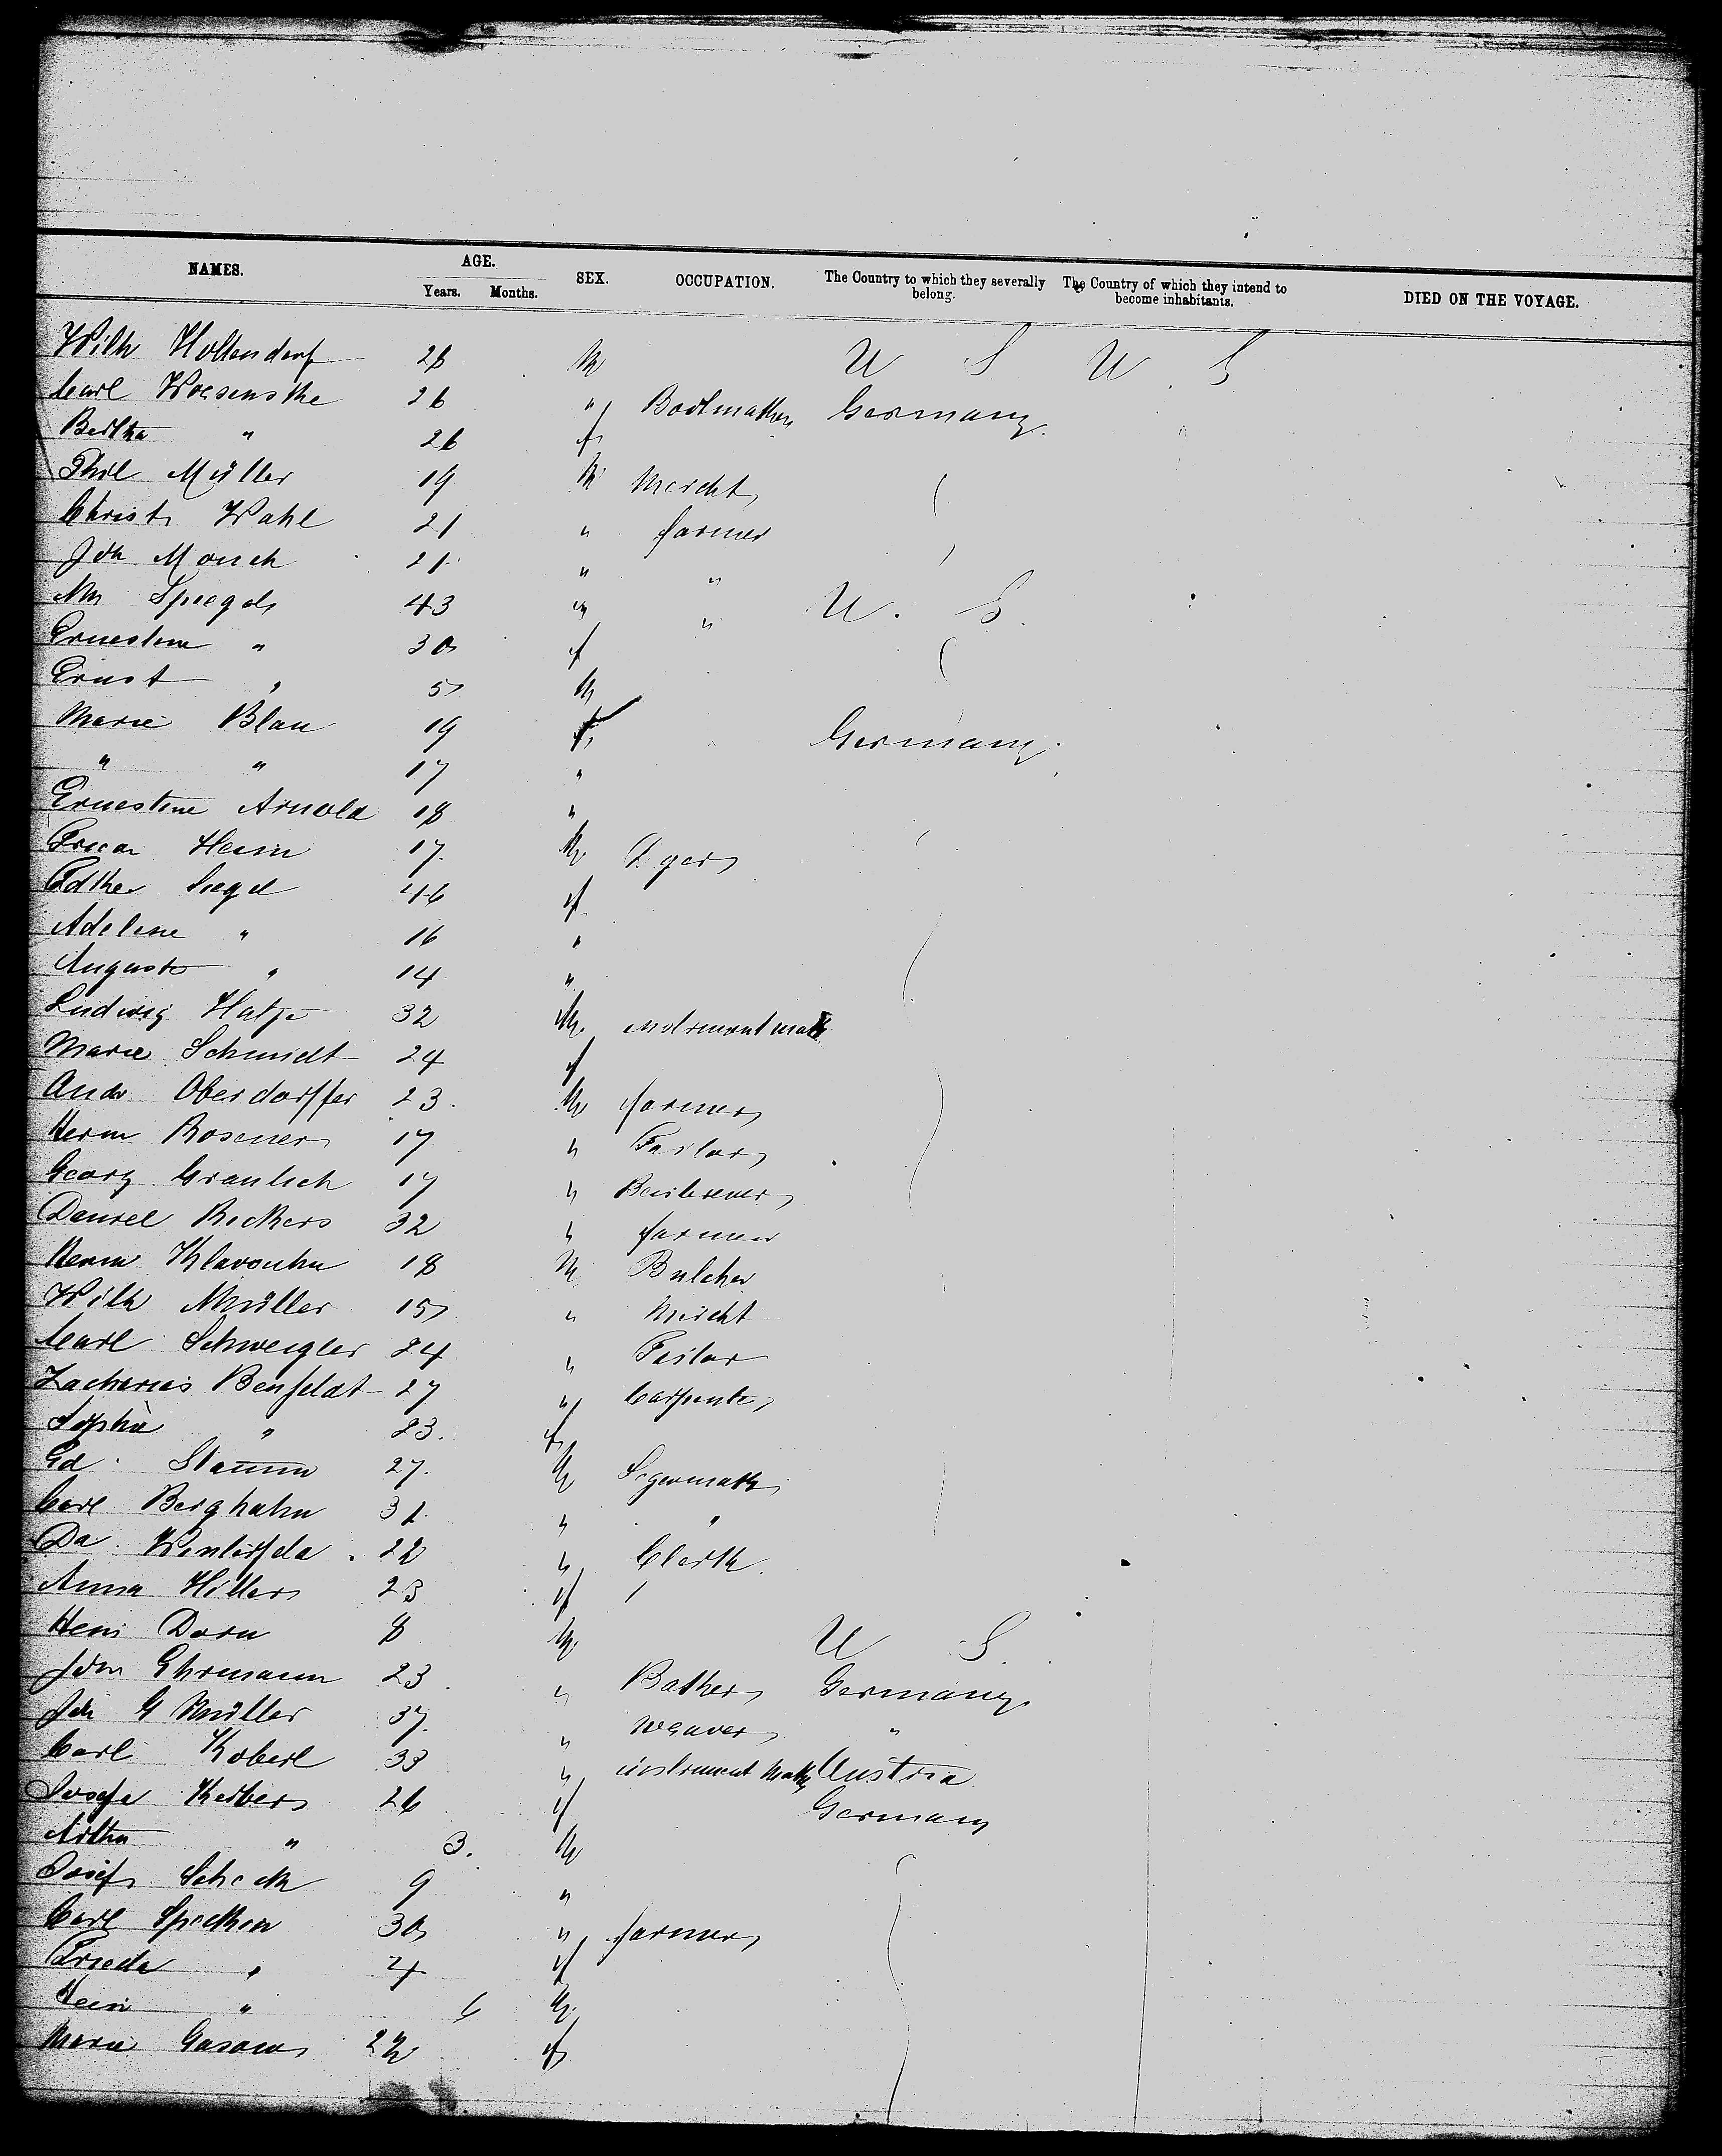 NAMES. AGE. SEX. OCCUPATION. The Country to which they severally belong. The Country of which they intend to become inhabitants. DIED ON THE VOYAGE.
Years. Months.
Wilh Hollendorf 28 M U S U S
Carl 26 " Germany
Bertha " 26 f
Phil Müller 19 M Mercht
Christ Wahl 21 " farmer
Joh Monch 21 " "
Spiegel 43 " " U. S.
Ernestine " 30 f
Ernst " 5 M
Marie Blau 19 f Germany
" " 17 "
Ernestine Arnold 18 "
Heim 17 M
Siegel 46 f
Adeline " 16 "
Auguste " 14 "
Ludwig Hatje 32 M.
Marie Schmidt 24 f
Andr Oberdorffer 23. M farmer
Herm Rosener 17 " Tailor
Georg Graulich 17 "
Daniel Rickers 32 " farmer
Herm Klavouhn 18 M Butcher
Wilh Müller 15 " Mercht
Carl Schweigler 24 " Tailor
Zacharias Benfeldt 27 " Carpenter
Sophie " 23. f
Ed. Stamm 27. M Segarmak
Carl Berghahn 31. " "
22 " Clerk.
Anna Hillers 23 f
Hein Dorn 8 M U S.
Joh Ehrmann 23 " Baker Germany
Joh G Müller 37. " Weaver "
Carl Koberl 33 " instrument Mak Austria
Josefa Kerbers 26 f Germany
Arthu " 3. M
Josef Scheck 9 "
Carl Specken 30 " farmer
Frieda " 4 f
Hein " 6 M.
Marie 22 f